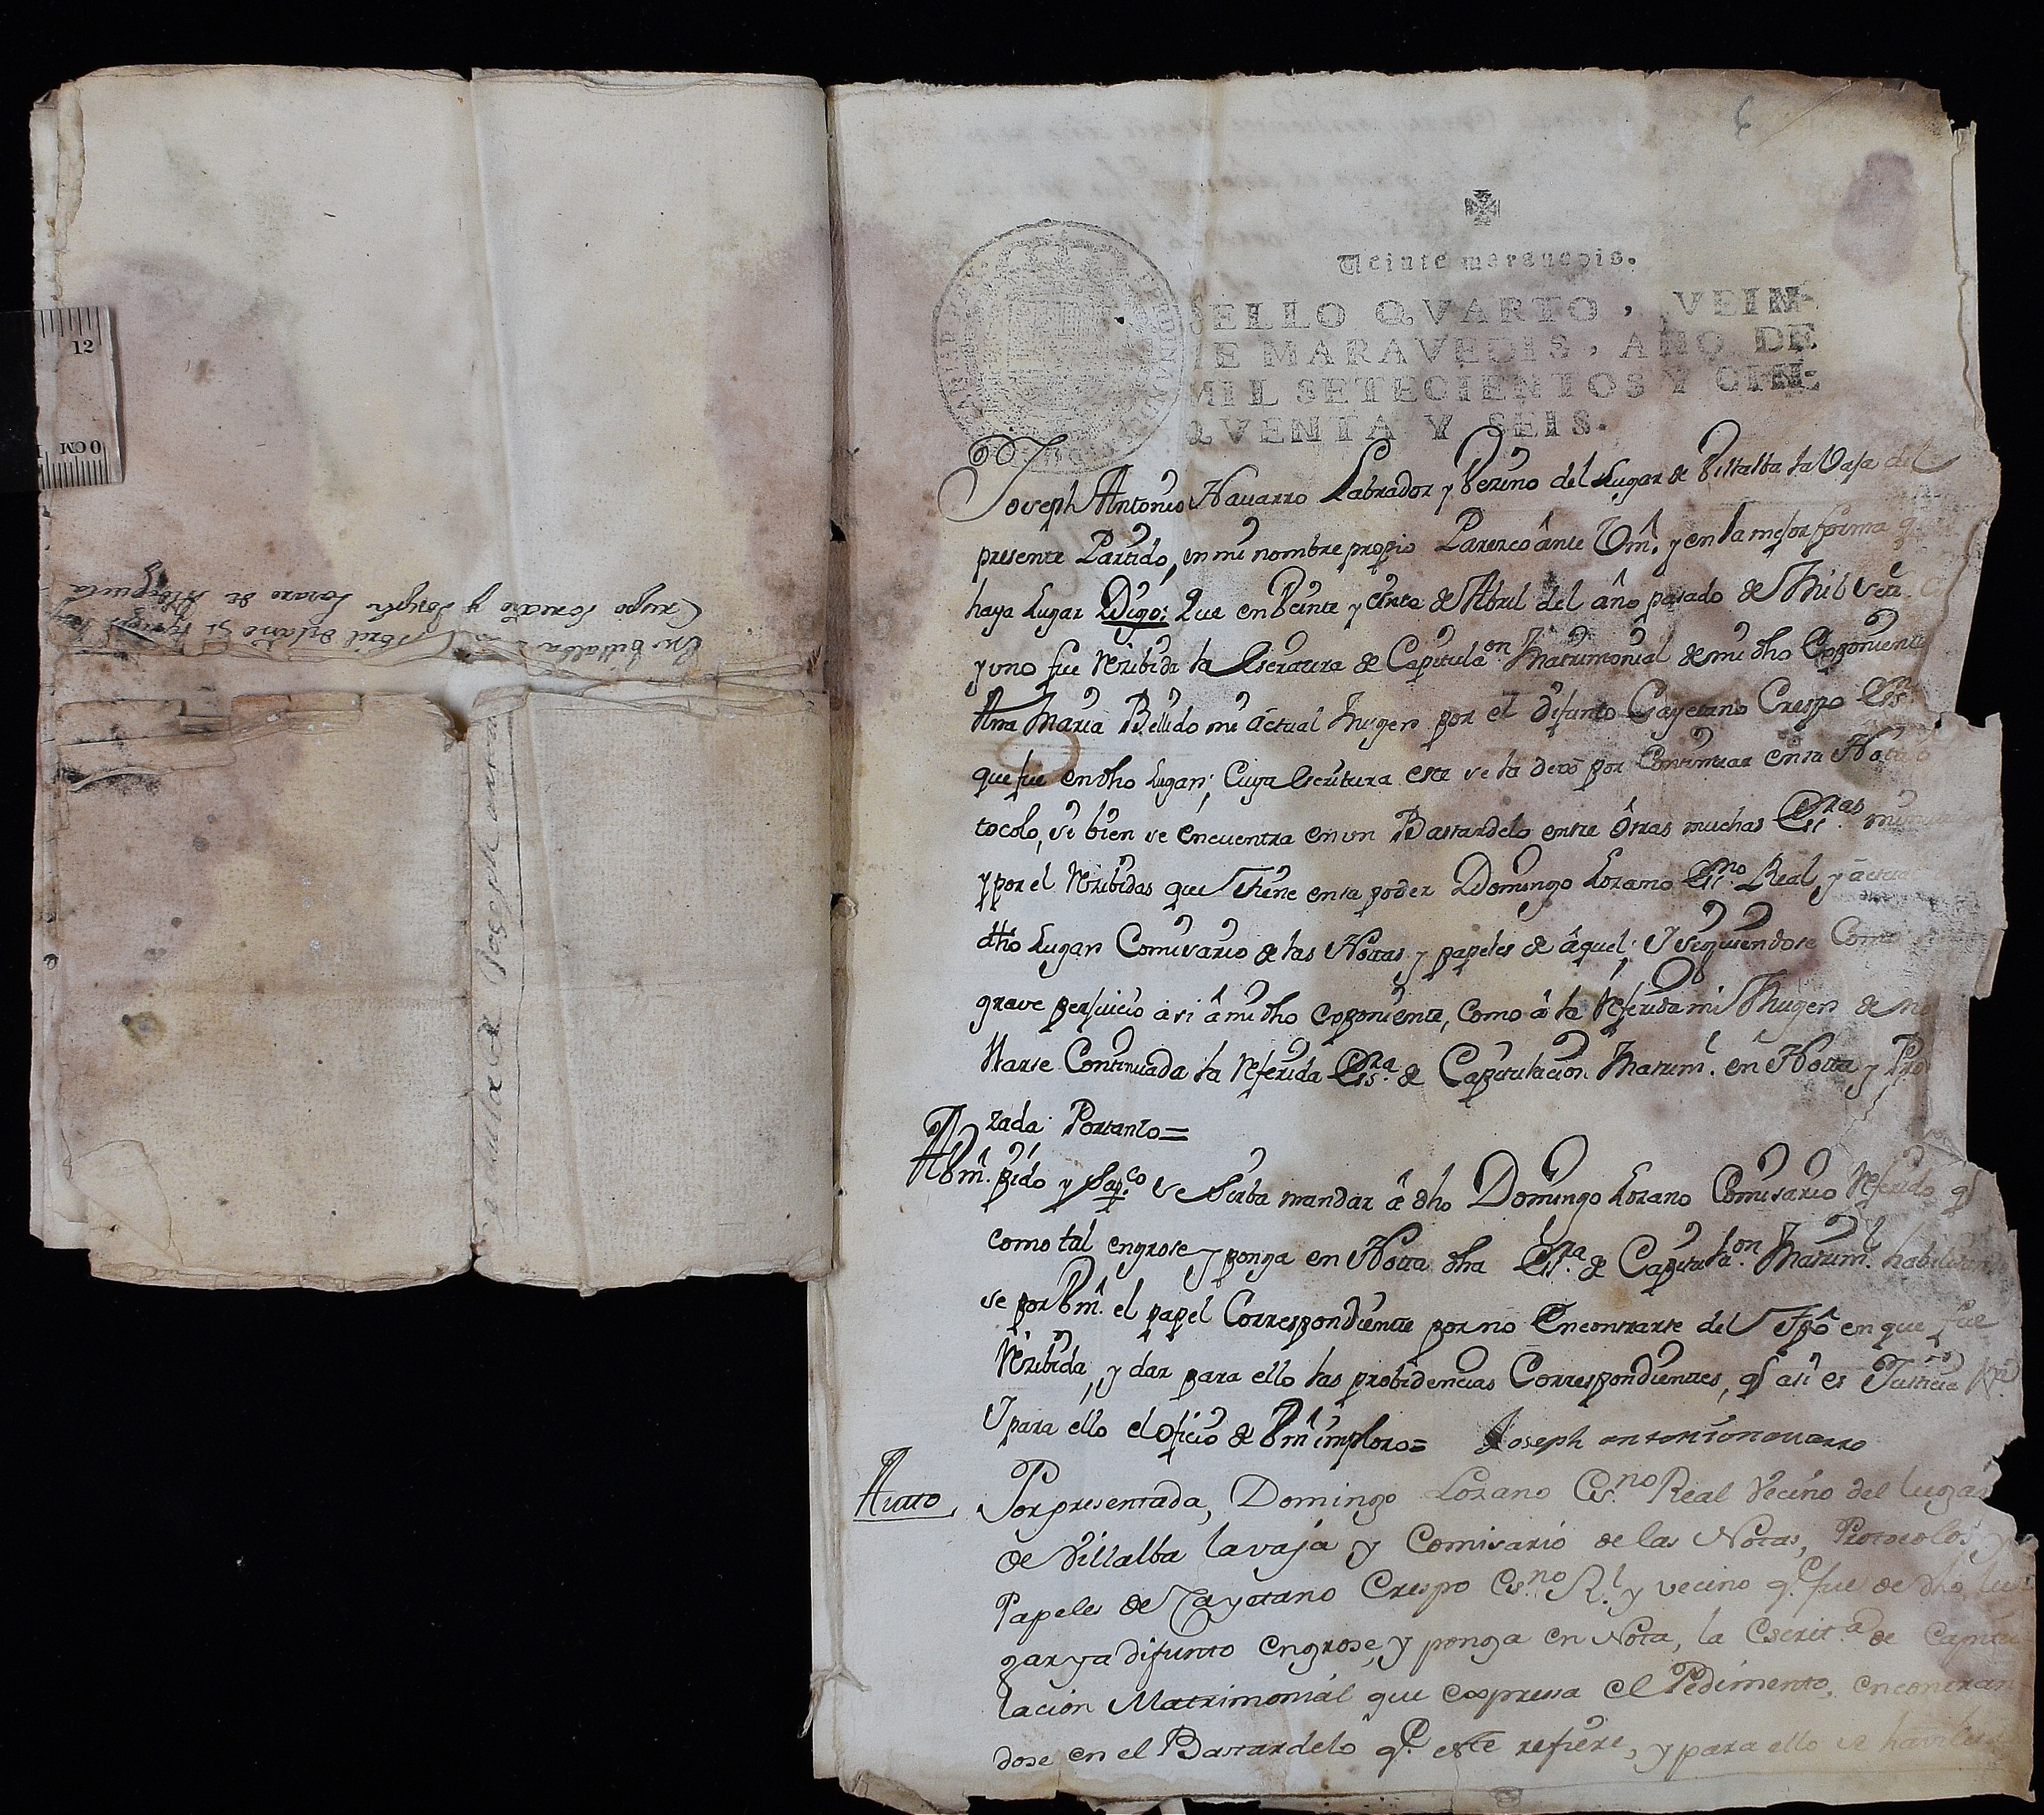 6
Veinte maravedis.
SELLO QVARTO, VEIN-
TE MARAVEDIS, AÑO DE
MIL SETECIENTOS Y CIN-
QVENTA Y SEIS.
Joseph Antonio Navarro Labrador y Vezino del Lugar de Villalba la Vaja del
presente Partido, en mi nombre propio Parezco ânte Vm̂. y en la mejor forma q
haya Lugar Digo: Que en Veinte y cinco de Abril del año pasado de Mil Setz. Ci
y uno fue Rezibida la Escratura de Capitula.on Matrimonial de mi dho Exponiente
Ana Maria Bellido mi actual Muger por el difunto Cayetano Crespo Ess.
que fue en dho Lugar; Cuya Escritura esta se ha dexo por Continuar en la Nota
tocolo, si bien se encuentra en un Bastardelo entre ôtras muchas Ess.ras
y por el Rezibidas que Tiene en su poder Domingo Lozano Ess.no Real, y actual
dho Lugar Comisario de las Notas y papeles de âquel; Y siguiendose Como
grave perjuicio asi â mi dho Exponiente, Como â la Referida mi Muger de no
llarse Continuada la Referida Ess.ra de Capitulacion Matrim.l en Nota y Pro
zada: Portanto=
A Vm̂. pido y Sup.co se Sirba mandar â dho Domingo Lozano Comisario Referido q
como tal engrose y ponga en Nota dha Ess.ra de Capitula.on Matrim.l habilitan
se por Vm̂. el papel Correspondiente por no Encontrarse del Tpô en que fue
Rezibida, y dar para ello las probidencias Correspondientes, q asi es Justicia
Y para ello el Oficio de Vm̂ imploro= Joseph antonionavarro
Autto. Por presentada, Domingo Lozano Es.no Real Vecino del lugar
de Villalba la vaja y Comisario de las Notas, Protocolos, y
Papeles de Cayetano Crespo Es.no R.l y vecino q.e fue de dho lu
gar ya difunto engrose, y ponga en Nota, la Escrit.a de Capitu
lacion Matrimonial que expressa el Pedimento, encontran
dose en el Bastardelo q.e este refiere, y para ello se havilit
En Villalba
Crespo Notario y Joseph Lozano de
de Joseph
12
0 CM